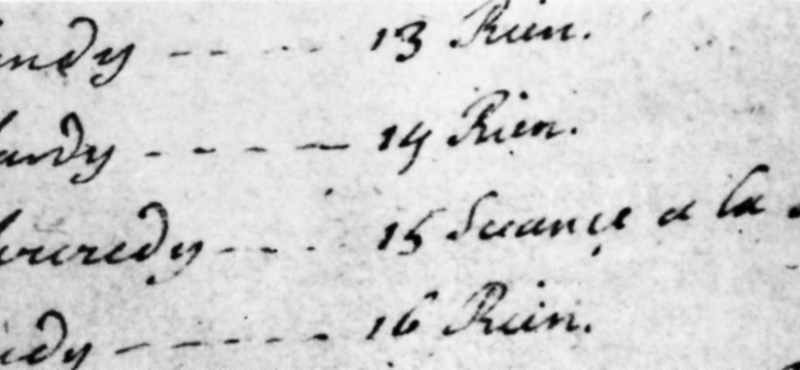 undy - - - - 13 Rien.
ardy - - - - - 14 Rien.
ercredy - - - 15 Seance a la
udy - - - - - - 16 Rien.